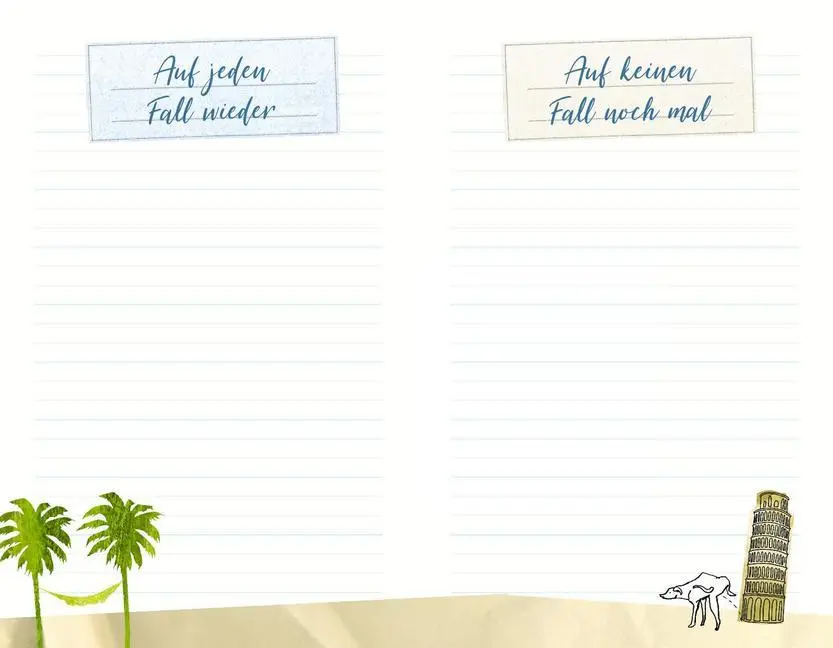 Auf jeden
Fall wieder
Auf keinen
Fall noch mal